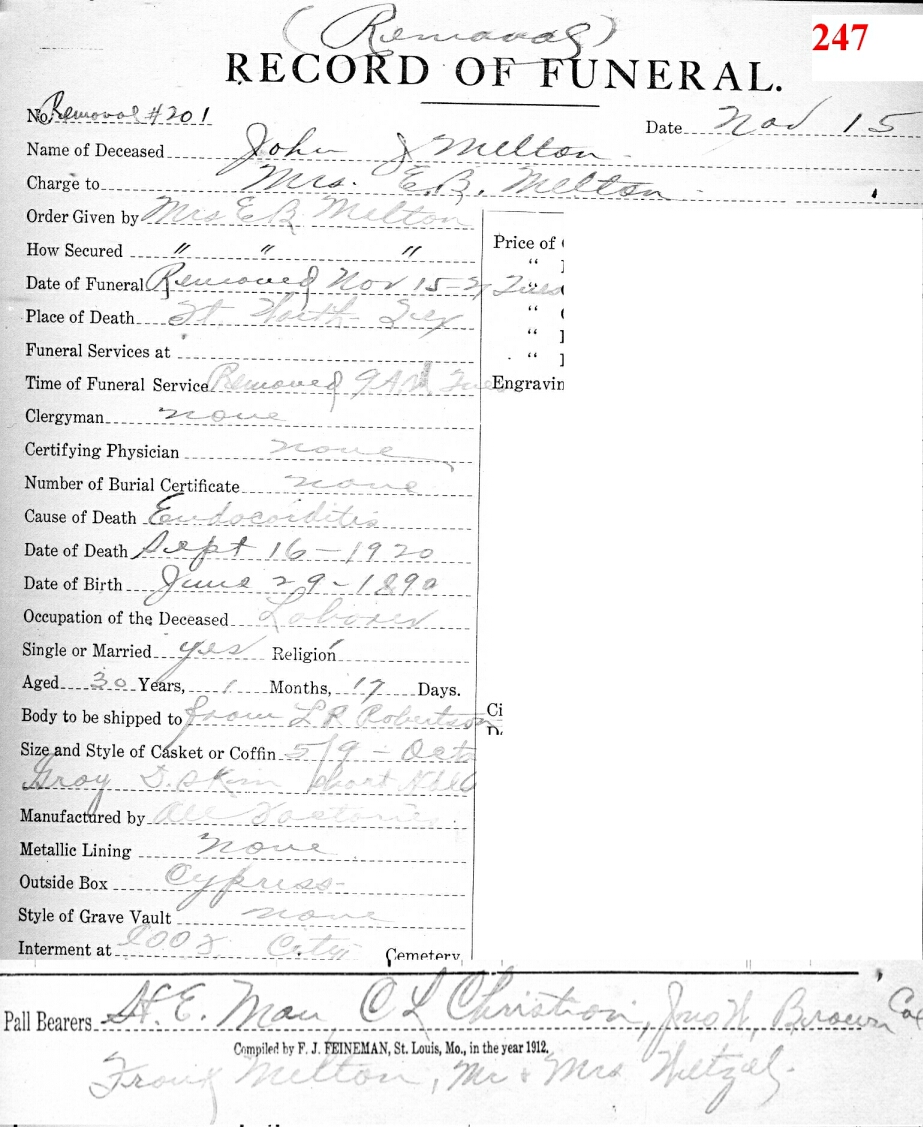 (Removal)
247
RECORD OF FUNERAL.
No. Removal #201
Date Nov 15
Name of Deceased John J Melton
Charge to Mrs. E.B. Melton
Order Given by Mrs E B Melton
How Secured " " "
Price of
"
"
"
"
"
Engravin
Date of Funeral Removed Nov 15-2 Tues
Place of Death Ft Worth Tex
Funeral Services at
Time of Funeral Service Removed 9 AM Tues
Clergyman none
Certifying Physician none
Number of Burial Certificate none
Cause of Death Endocoiditis
Date of Death Sept 16-1920
Date of Birth June 29-1890
Occupation of the Deceased Laborer
Single or Married yes Religion
Aged 30 Years, 1 Months, 17 Days.
Body to be shipped to from L P Robertson
Ci
Size and Style of Casket or Coffin 5/9 - Octa
Gray D. Skin Short
Manufactured by
Metallic Lining None
Outside Box Cypress
Style of Grave Vault none
Interment at City Cemetery
Pall Bearers H. E. Man, C L Christian, Jno W, Brown
Compiled by F. J. FEINEMAN, St. Louis, Mo., in the year 1912.
Frank Melton, Mr & Mrs Wetzel.